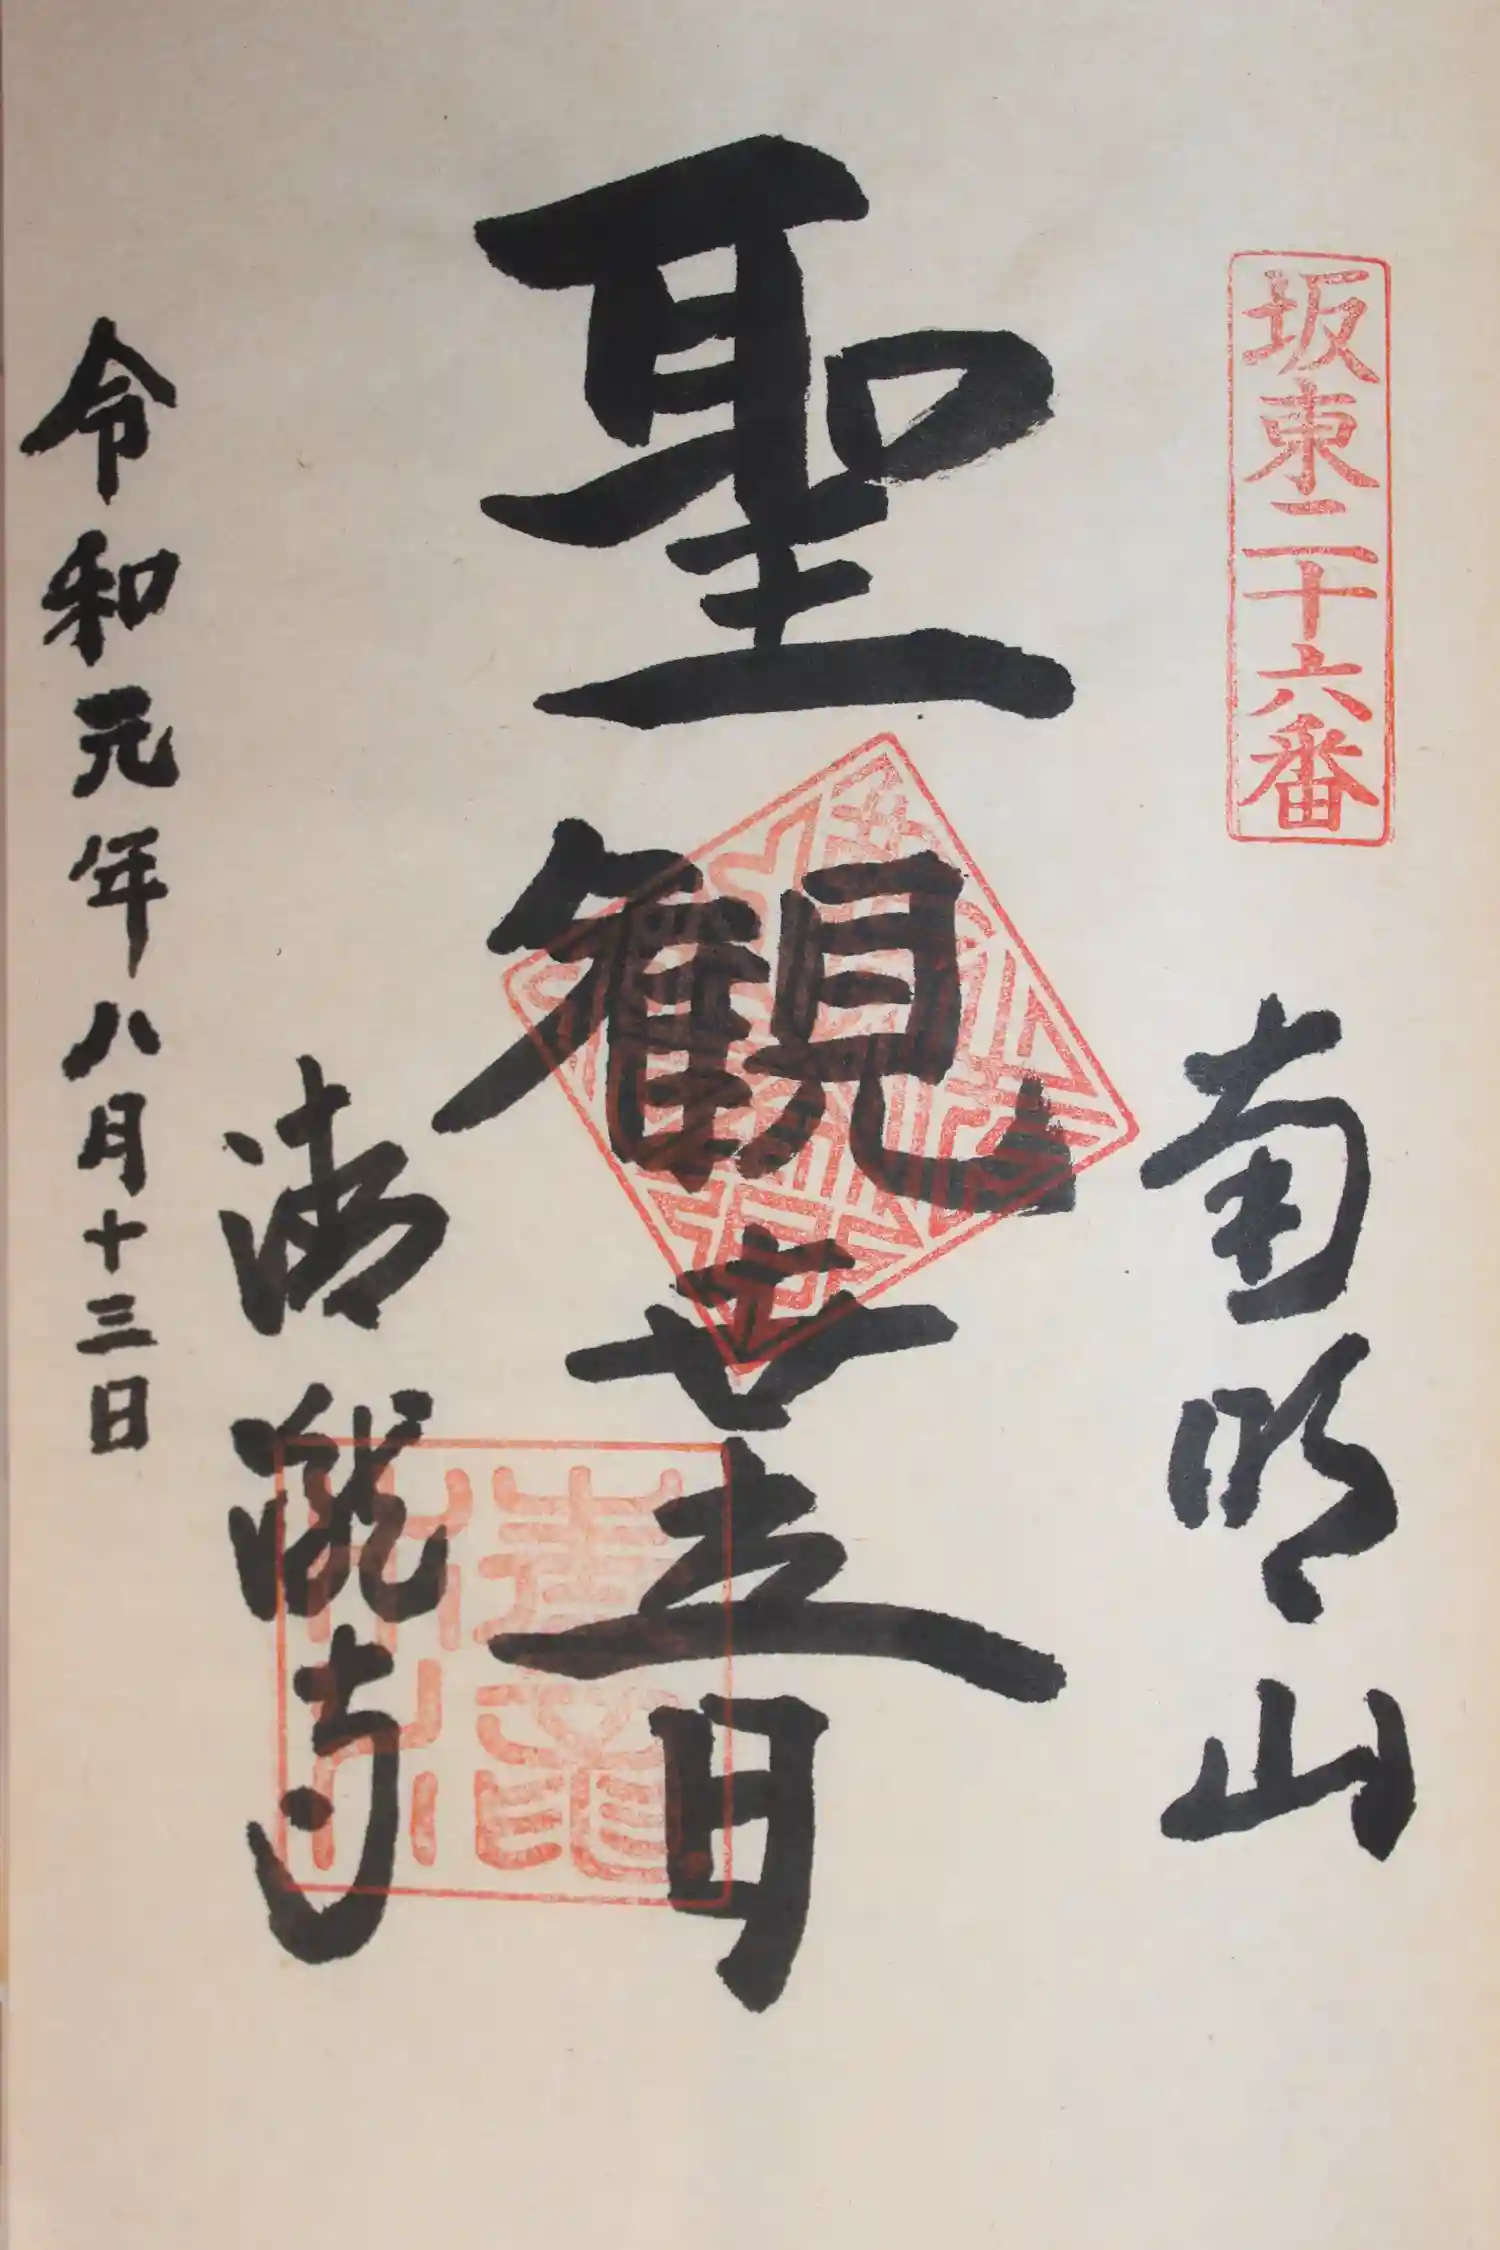 坂東二十六番
南明山
聖観世音
清瀧寺
令和元年八月十三日